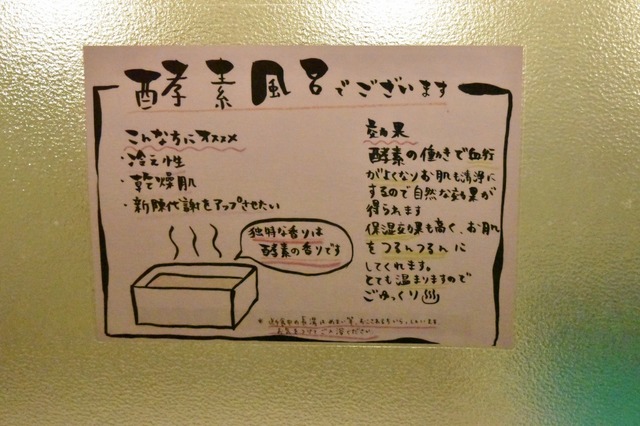 酵素風呂でございます
こんな方にオススメ
・冷え性
・乾燥肌
・新陳代謝をアップさせたい
独特な香りは
酵素の香りです
効果
酵素の働きで血行
がよくなりお肌も清浄に
するので自然な効果が
得られます
保湿効果も高く、お肌
をつるんつるんに
してくれます。
とても温まりますので
ごゆっくり♨